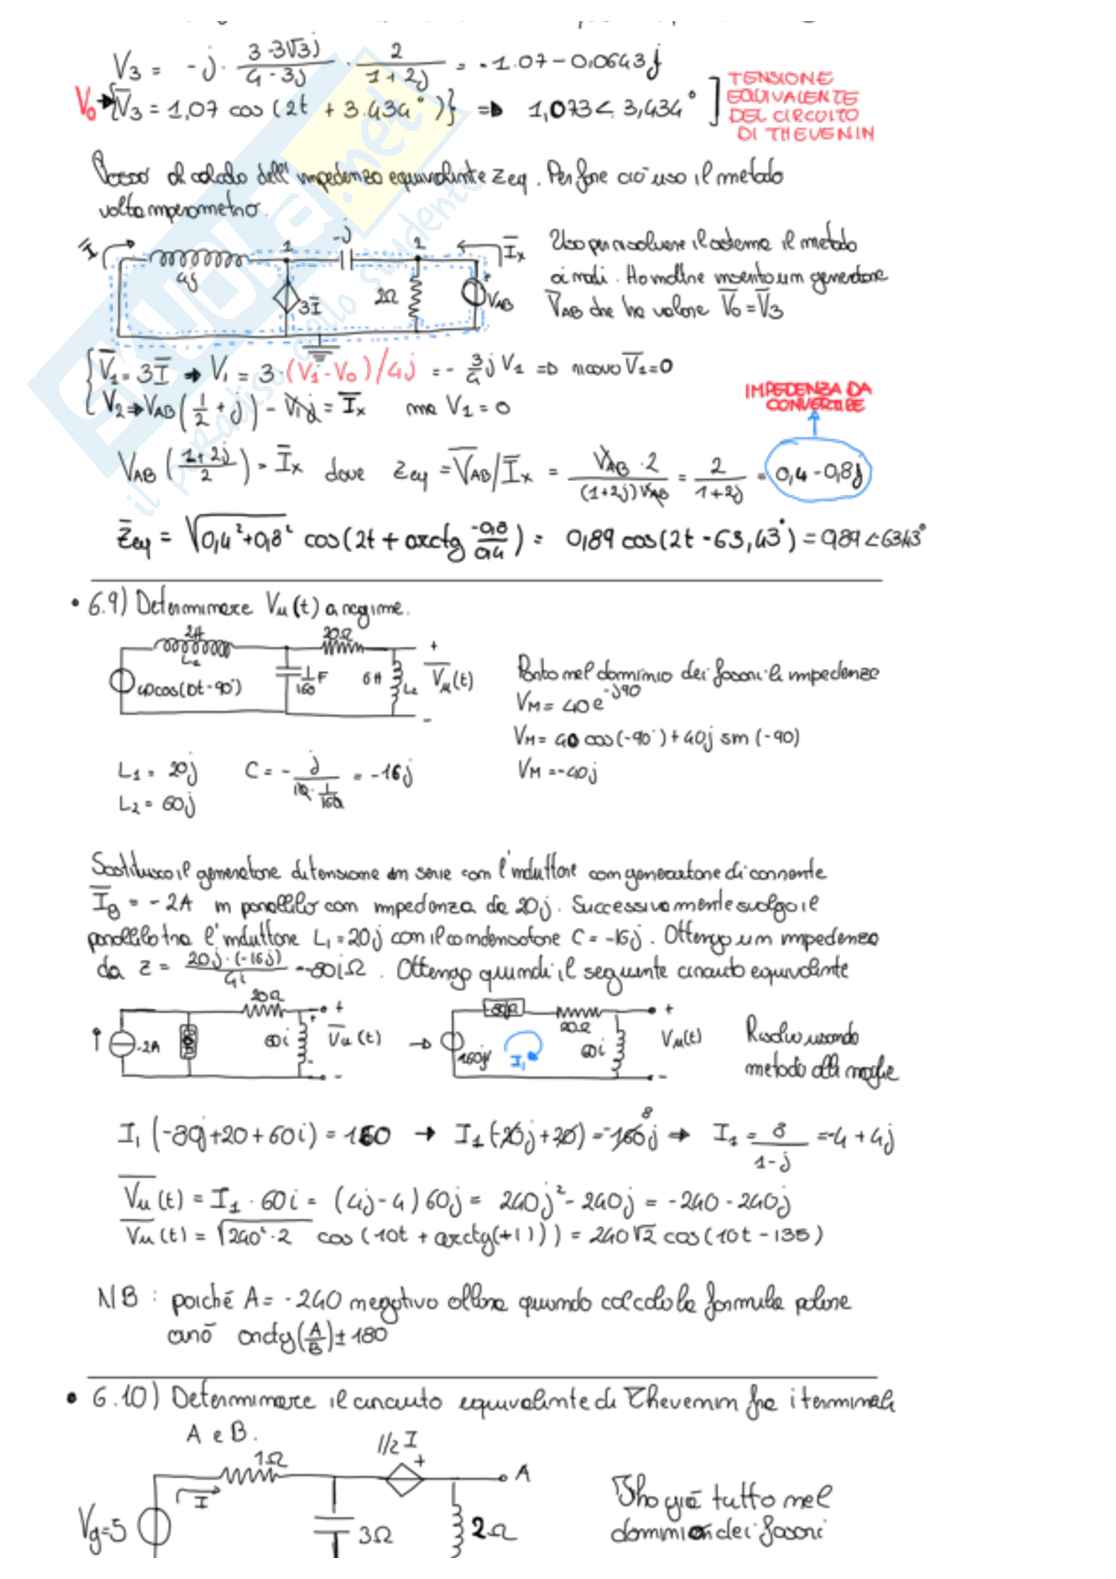 V3 = -j · 3·3√3j / 4-3j · 2 / 1+2j = -1.07-0,0643j
V0 → {V̅3 = 1,07 cos(2t + 3.434°)} ⇒ 1,073∠3,434° ] TENSIONE
EQUIVALENTE
DEL CIRCUITO
DI THEVENIN
Passo al calcolo dell'impedenza equivalente Zeq. Per fare ciò uso il metodo
voltamperometrico.
I̅ 4j 1 -j 2 I̅x
3I̅ 2Ω VAB
Uso per risolvere il sistema il metodo
ai nodi. Ho inoltre inserito un generatore
V̅AB che ha valore V̅0 = V̅3
{ V̅1 = 3I̅ → V1 = 3·(V1-V0)/4j = -3/4 j V1 ⇒ ricavo V̅1=0
{ V2 → VAB(1/2 + j) - V1j = I̅x ma V1 = 0
IMPEDENZA DA
CONVERTIRE
VAB(1+2j / 2) = I̅x dove Zeq = V̅AB/I̅x = VAB·2 / (1+2j)VAB = 2 / 1+2j = 0,4-0,8j
Z̅eq = √0,4²+0,8² cos(2t + arctg -0,8/0,4) = 0,89 cos(2t - 63,43°) = 0,89∠63,43°
• 6.9) Determinare Vu(t) a regime.
2H 20Ω +
40cos(10t-90°) 1/160 F 6H L2 V̅u(t)
-
Porto nel dominio dei fasori le impedenze
VM = 40e^-j90
VM = 40 cos(-90°)+40j sin(-90)
VM = -40j
L1 = 20j C = - j / 10·1/160 = -16j
L2 = 60j
Sostituisco il generatore di tensione in serie con l'induttore con generatore di corrente
I̅g = -2A in parallelo con impedenza da 20j. Successivamente svolgo il
parallelo tra l'induttore L1=20j con il condensatore C = -16j. Ottengo un impedenza
da Z = 20j·(-16j) / 4i = -80iΩ. Ottengo quindi il seguente circuito equivalente
20Ω + 20Ω +
↑ -2A 60i V̅u(t) → 160j I1 60i Vu(t)
- -
Risolvo usando
metodo alle maglie
I1(-80j+20+60i) = 160 → I1(-20j+20) = -160j ⇒ I1 = 8 / 1-j = -4+4j
V̅u(t) = I1·60i = (4j-4)60j = 240j²-240j = -240-240j
V̅u(t) = √240²·2 cos(10t + arctg(+1)) = 240√2 cos(10t - 135)
NB : poiché A = -240 negativo allora quando calcolo la formula polare
arctg(A/B)±180
• 6.10) Determinare il circuito equivalente di Thevenin fra i terminali
A e B.
1Ω 1/2 I + A
I
Vg=5 3Ω 2Ω
Tho già tutto nel
dominio dei fasori